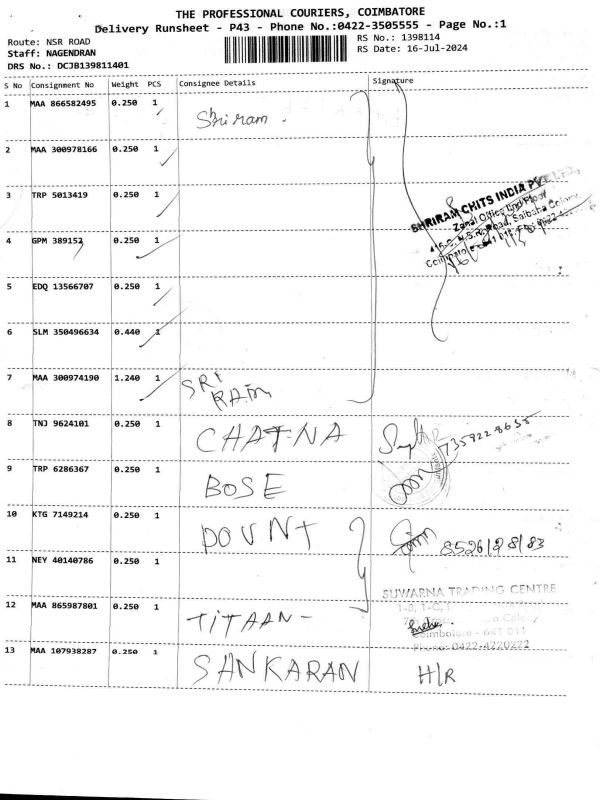 THE PROFESSIONAL COURIERS, COIMBATORE
Delivery Runsheet - P43 - Phone No.:0422-3505555 - Page No.:1
Route: NSR ROAD
RS No.: 1398114
Staff: NAGENDRAN
RS Date: 16-Jul-2024
DRS No.: DCJB139811401
S No Consignment No Weight PCS Consignee Details Signature
1 MAA 866582495 0.250 1 Shriram.
2 MAA 300978166 0.250 1
3 TRP 5013419 0.250 1
SHRIRAM CHITS INDIA PVT LTD.
Zonal Office IInd Floor
N.S.R. Road, Saibaba Colony
4 GPM 389152 0.250 1
5 EDQ 13566707 0.250 1
6 SLM 350496634 0.440 1
7 MAA 300974190 1.240 1 SRI
RAM
8 TNJ 9624101 0.250 1 CHATNA
9 TRP 6286367 0.250 1 BOSE
10 KTG 7149214 0.250 1
11 NEY 40140786 0.250 1
SUWARNA TRADING CENTRE
12 MAA 865987801 0.250 1 TITAAN -
Coimbatore - 641 011
Phone: 0422-4220222
13 MAA 107938287 0.250 1 SANKARAN H/R